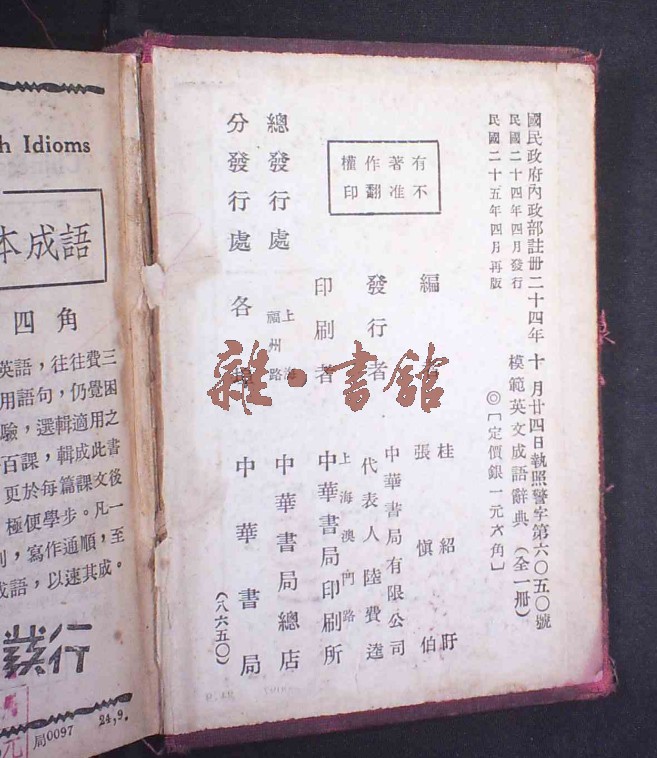 國民政府內政部註冊二十四年十月廿四日執照警字第六〇五〇號
民國二十四年四月發行
民國二十五年四月再版
模範英文成語辭典（全一冊）
◎〔定價銀一元六角〕
有不
著准
作翻
權印
編者
桂紹盱
張慎伯
發行者
中華書局有限公司
代表人陸費逵
印刷者
上海澳門路
中華書局印刷所
總發行處
上海
福州路
中華書局總店
分發行處
各埠
中華書局
（八六五〇）
雜·書館
h Idioms
本成語
四角
英語，往往費三
用語句，仍覺困
驗，選輯適用之
百課，輯成此書
更於每篇課文後
極便學步。凡一
，寫作通順，至
成語，以速其成。
發行
元
局0097
24,9.